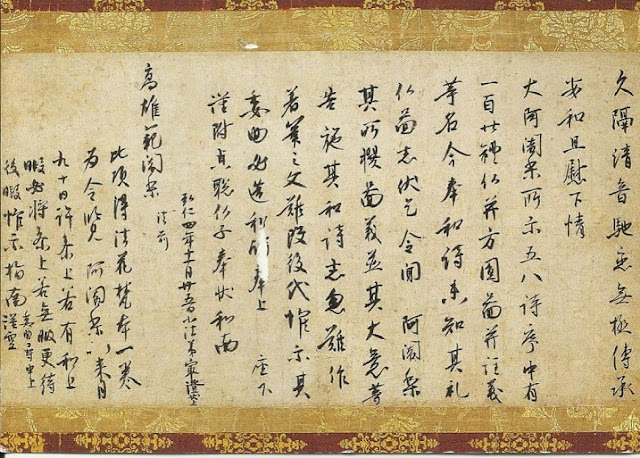 久隔清音馳恋無極傳承
安和且慰下情
大阿闍梨所示五八詩序中有
一百廿禮仏并方圓圖并註義
等名今奉和詩未知其礼
仏圖者伏乞令聞 阿闍梨
其所撰圖義并其大意等
告施其和詩者忽難作
著筆之文難改後代惟示其
委曲必造和詩奉上 座下
謹附貞聡仏子奉状和南
弘仁四年十一月廿五日小法弟最澄
高雄範闍梨
法前
此頃得法花梵本一巻
為令覧 阿闍梨以来月
九十日許参上若有和上
暇必将参上若無暇更待
後暇惟示指南 謹空